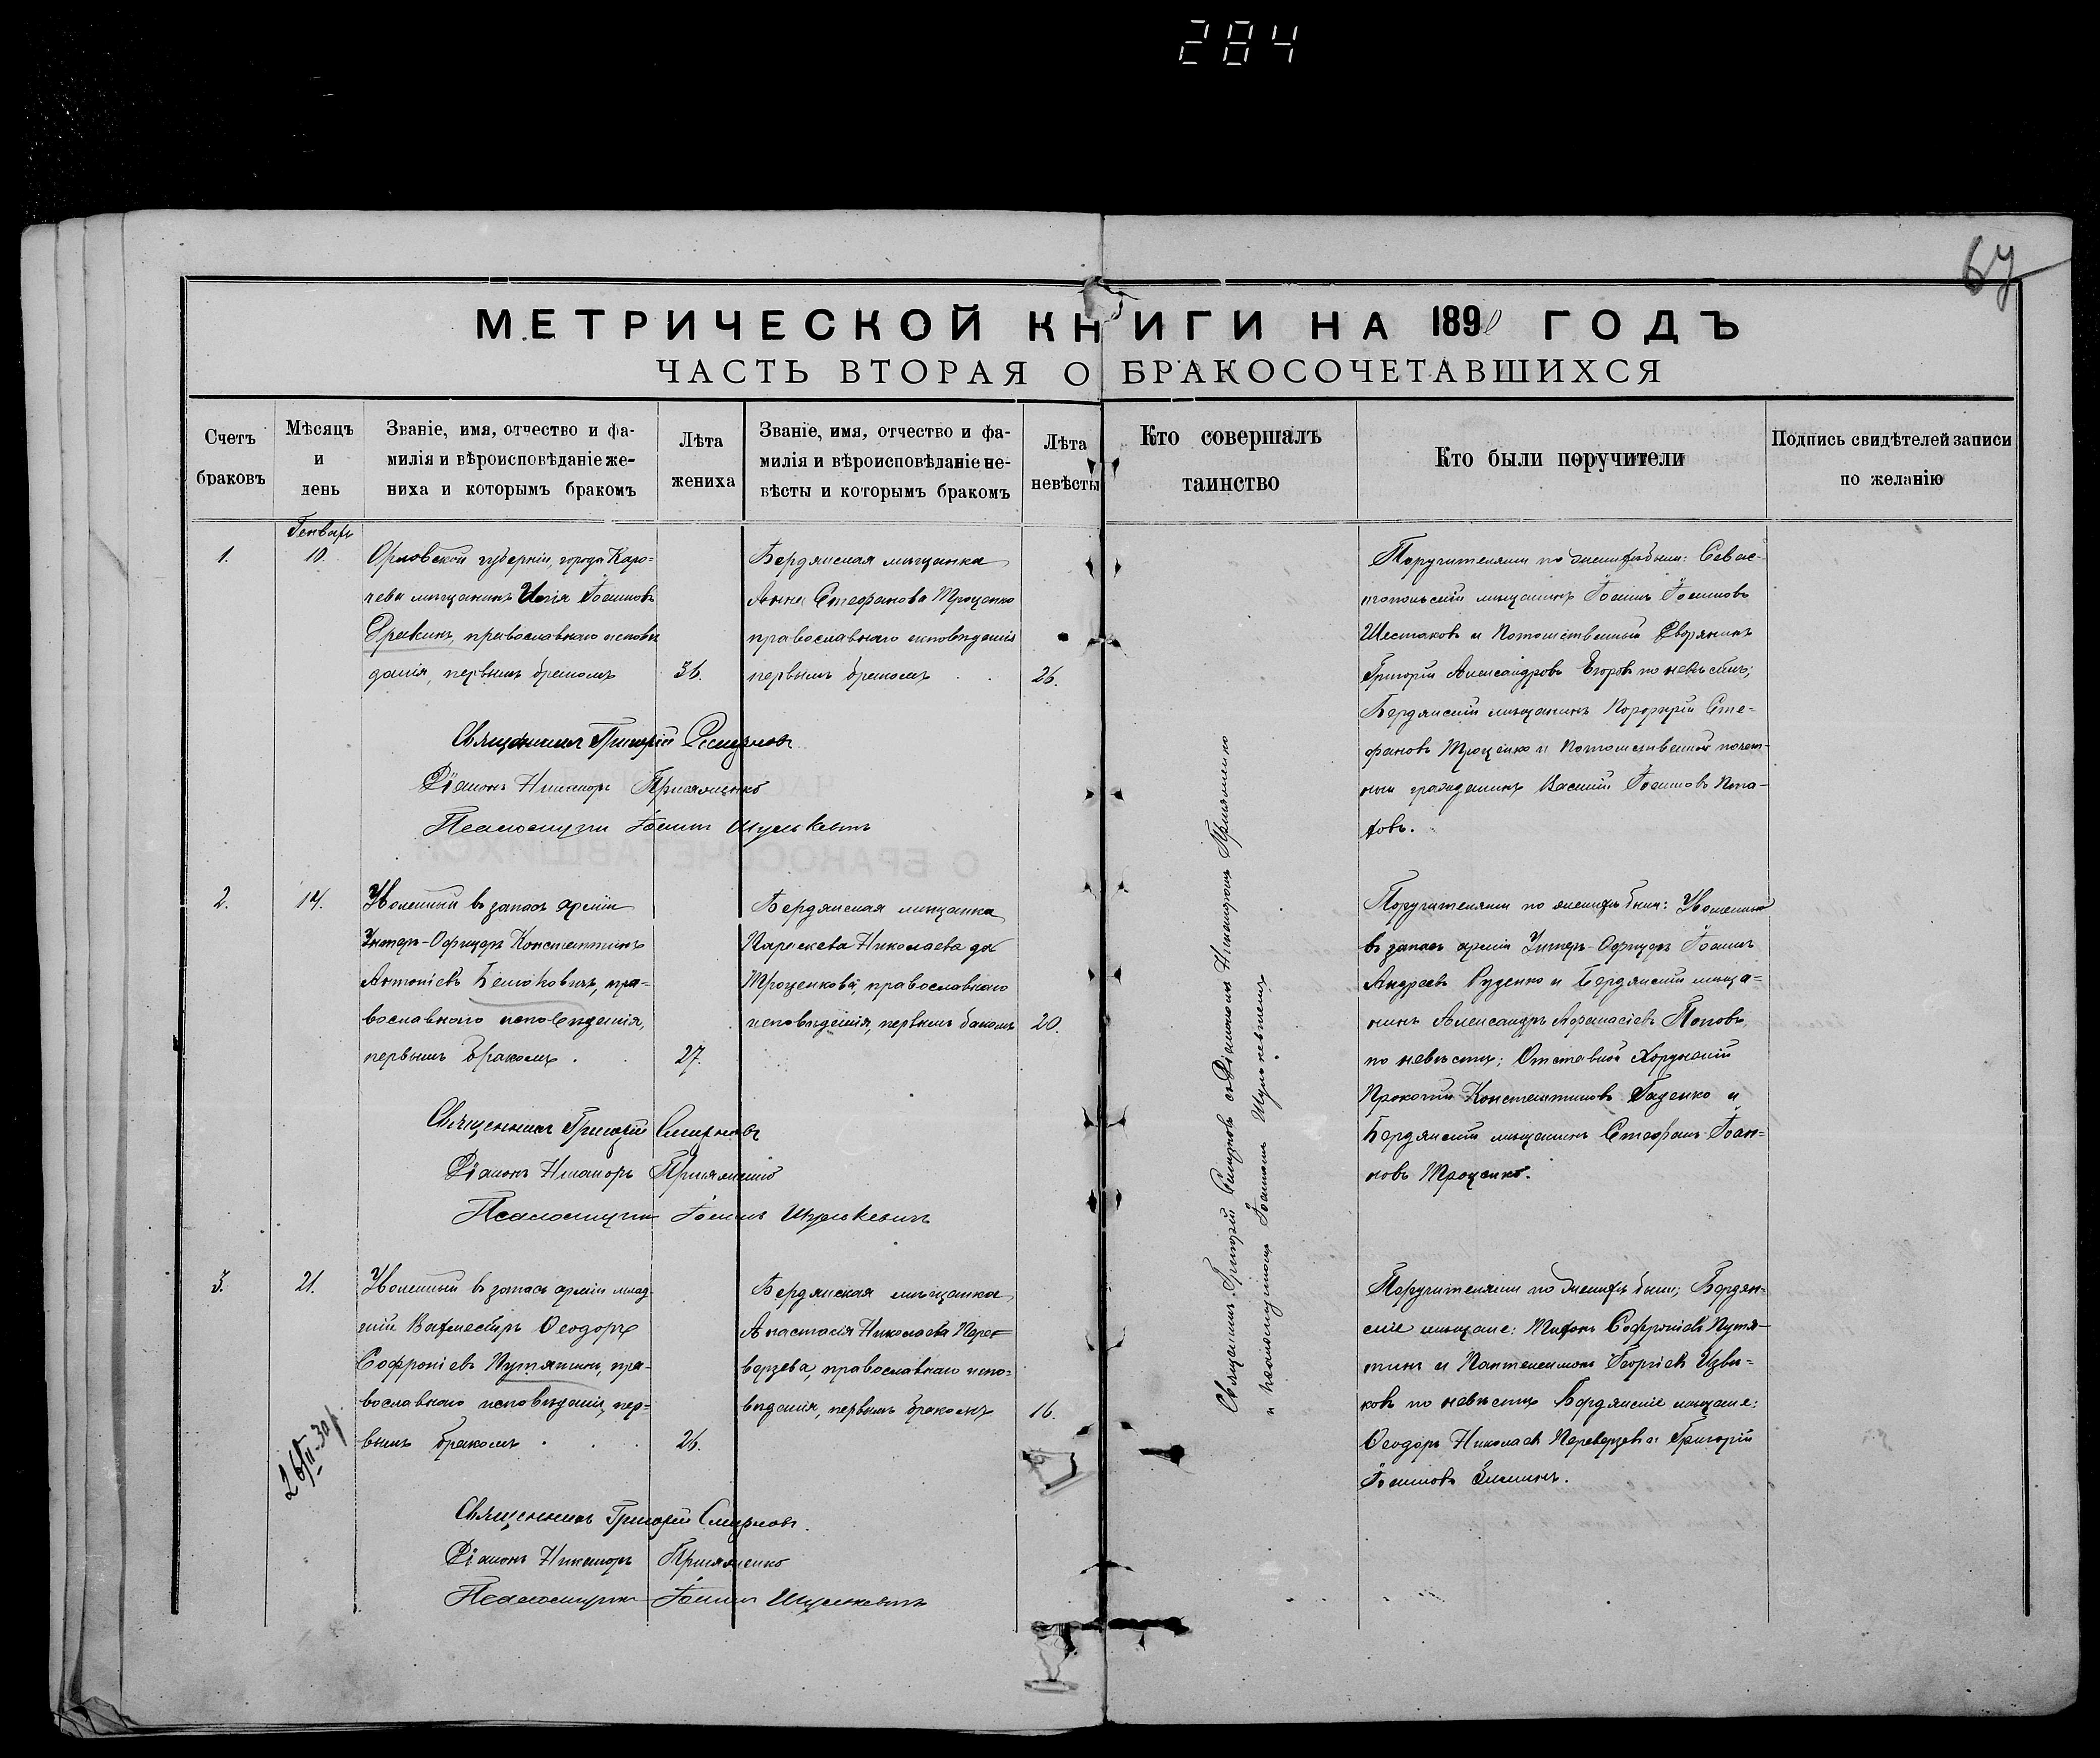 284
67
МЕТРИЧЕСКОЙ КНИГИ НА 189 ГОДЪ
ЧАСТЬ ВТОРАЯ О БРАКОСОЧЕТАВШИХСЯ
Счетъ
браковъ
Мѣсяцъ
и
день
Званіе, имя, отчество и фа-
милія и вѣроисповѣданіе же-
ниха и которымъ бракомъ
Лѣта
жениха
Званіе, имя, отчество и фа-
милія и вѣроисповѣданіе не-
вѣсты и которымъ бракомъ
Лѣта
невѣсты
Кто совершалъ
таинство
Кто были поручители
Подпись свидѣтелей записи
по желанію
Генварь
1.
10.
Орловской губерніи, города Кара=
чева мѣщанинъ Илія Іоанновъ
православнаго исповѣ
данія, первымъ бракомъ
36.
Бердянская мѣщанка
Анна Стефанова Троценко
православнаго исповѣданія
первымъ бракомъ
26.
Поручителями по женихѣ были: Севас-
топольскій мѣщанинъ Іоаннъ Іоанновъ
Шестаковъ и Потомственный Дворянинъ
Григорій Александровъ Егоровъ по невѣстѣ;
Бердянскій мѣщанинъ Порфирій Сте-
фановъ Троценко и Потомственный почет-
ный гражданинъ Василій Іоанновъ Попа-
Священникъ Григорій Смирновъ
Діаконъ Никаноръ Присяженко
Псаломщикъ Іоаннъ Шулькевичъ
2.
14.
Уволенный въ запасъ арміи
Унтеръ-Офицеръ Константинъ
Антоніевъ пра=
вославнаго исповѣданія,
первымъ бракомъ
27.
Бердянская мѣщанка
Параскева Николаева
Троценкова, православнаго
исповѣданія, первымъ бракомъ
20.
Поручителями по женихѣ были: Уволенный
въ запасъ арміи Унтеръ-Офицеръ Іоаннъ
Андреевъ Руденко и Бердянскій мѣща=
нинъ Александръ Афанасіевъ Поповъ,
по невѣстѣ; Отставной Хорунжій
Прокопій Константиновъ Гаденко и
Бердянскій мѣщанинъ Стефанъ Іоан=
новъ Троценко.
Священникъ Григорій Смирновъ
Діаконъ Никаноръ Присяженко
Псаломщикъ Іоаннъ Шулькевичъ
Священникъ Григорій Смирновъ съ Діакономъ Никаноромъ Присяженко
и псаломщикомъ Іоанномъ Шулькевичемъ
3.
21.
Уволенный въ запасъ арміи млад-
шій Вахмистръ Ѳеодоръ
Софроніевъ Путятинъ, пра-
вославнаго исповѣданія, пер=
вымъ бракомъ
26.
Бердянская мѣщанка
Анастасія Николаева Пере=
верзева, православнаго испо=
вѣданія, первымъ бракомъ
16.
Поручителями по женихѣ были; Бердян=
скіе мѣщане: Софроніевъ Путя-
тинъ и Пантелеимонъ Георгіевъ Изви=
ковъ по невѣстѣ Бердянскіе мѣщане:
Ѳеодоръ Николаевъ Переверзевъ и Григорій
Іоанновъ
Священникъ Григорій Смирновъ.
Діаконъ Никаноръ Присяженко
Псаломщикъ Іоаннъ Шулькевичъ